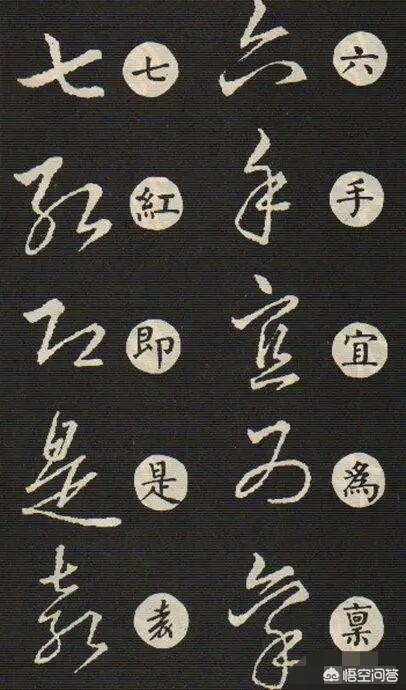 六手宜為稟
六手宜為稟
七紅即是袁
七紅即是袁
悟空问答